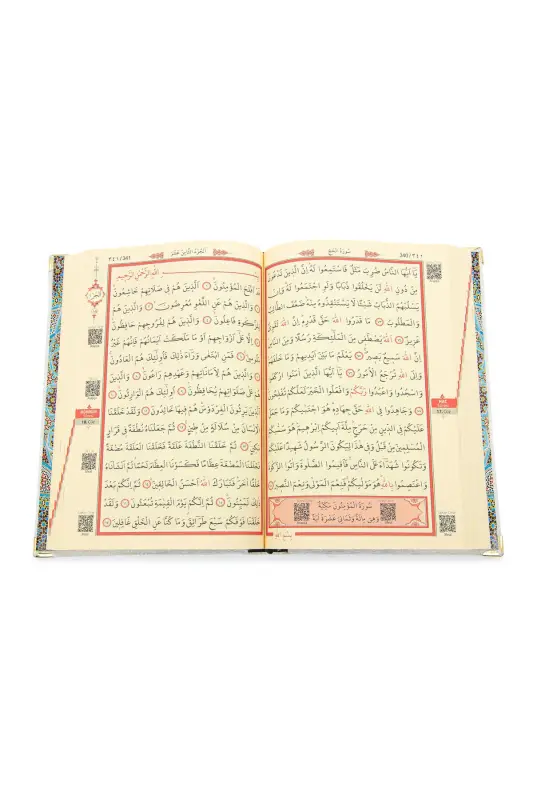 سُورَةُ الْحَجِّ
340/٣٤٠
يَا أَيُّهَا النَّاسُ ضُرِبَ مَثَلٌ فَاسْتَمِعُوا لَهُ إِنَّ الَّذِينَ تَدْعُونَ
مِنْ دُونِ اللهِ لَنْ يَخْلُقُوا ذُبَابًا وَلَوِ اجْتَمَعُوا لَهُ وَإِنْ
يَسْلُبْهُمُ الذُّبَابُ شَيْئًا لَا يَسْتَنْقِذُوهُ مِنْهُ ضَعُفَ الطَّالِبُ
وَالْمَطْلُوبُ ٧٣ مَا قَدَرُوا اللهَ حَقَّ قَدْرِهِ إِنَّ اللهَ لَقَوِيٌّ
عَزِيزٌ ٧٤ اللهُ يَصْطَفِي مِنَ الْمَلٰئِكَةِ رُسُلًا وَمِنَ النَّاسِ
إِنَّ اللهَ سَمِيعٌ بَصِيرٌ ٧٥ يَعْلَمُ مَا بَيْنَ أَيْدِيهِمْ وَمَا خَلْفَهُمْ
وَإِلَى اللهِ تُرْجَعُ الْأُمُورُ ٧٦ يَا أَيُّهَا الَّذِينَ آمَنُوا ارْكَعُوا
وَاسْجُدُوا وَاعْبُدُوا رَبَّكُمْ وَافْعَلُوا الْخَيْرَ لَعَلَّكُمْ تُفْلِحُونَ
وَجَاهِدُوا فِي اللهِ حَقَّ جِهَادِهِ هُوَ اجْتَبٰيكُمْ وَمَا جَعَلَ
عَلَيْكُمْ فِي الدِّينِ مِنْ حَرَجٍ مِلَّةَ أَبِيكُمْ إِبْرٰهِيمَ هُوَ سَمّٰيكُمُ
الْمُسْلِمِينَ مِنْ قَبْلُ وَفِي هٰذَا لِيَكُونَ الرَّسُولُ شَهِيدًا عَلَيْكُمْ
وَتَكُونُوا شُهَدَاءَ عَلَى النَّاسِ فَأَقِيمُوا الصَّلٰوةَ وَآتُوا الزَّكٰوةَ
وَاعْتَصِمُوا بِاللهِ هُوَ مَوْلٰيكُمْ فَنِعْمَ الْمَوْلٰى وَنِعْمَ النَّصِيرُ
سُورَةُ الْمُؤْمِنُونَ مَكِّيَّةٌ
وَهِيَ مِائَةٌ وَثَمَانِيَ عَشْرَةَ آيَةً
HAC
17. Cüz
اَلْجُزْءُ الثَّامِنُ عَشَرَ
٣٤١/341
اللهِ الرَّحْمٰنِ الرَّحِيمِ
قَدْ أَفْلَحَ الْمُؤْمِنُونَ ١ الَّذِينَ هُمْ فِي صَلَاتِهِمْ خَاشِعُونَ
وَالَّذِينَ هُمْ عَنِ اللَّغْوِ مُعْرِضُونَ ٣ وَالَّذِينَ هُمْ
لِلزَّكٰوةِ فَاعِلُونَ ٤ وَالَّذِينَ هُمْ لِفُرُوجِهِمْ حَافِظُونَ
إِلَّا عَلٰى أَزْوَاجِهِمْ أَوْ مَا مَلَكَتْ أَيْمَانُهُمْ فَإِنَّهُمْ غَيْرُ
مَلُومِينَ ٦ فَمَنِ ابْتَغٰى وَرَاءَ ذٰلِكَ فَأُولٰئِكَ هُمُ الْعَادُونَ
وَالَّذِينَ هُمْ لِأَمَانَاتِهِمْ وَعَهْدِهِمْ رَاعُونَ ٨ وَالَّذِينَ
هُمْ عَلٰى صَلَوَاتِهِمْ يُحَافِظُونَ ٩ أُولٰئِكَ هُمُ الْوَارِثُونَ ١٠
الَّذِينَ يَرِثُونَ الْفِرْدَوْسَ هُمْ فِيهَا خَالِدُونَ ١١ وَلَقَدْ خَلَقْنَا
الْإِنْسَانَ مِنْ سُلَالَةٍ مِنْ طِينٍ ١٢ ثُمَّ جَعَلْنَاهُ نُطْفَةً فِي قَرَارٍ
مَكِينٍ ١٣ ثُمَّ خَلَقْنَا النُّطْفَةَ عَلَقَةً فَخَلَقْنَا الْعَلَقَةَ مُضْغَةً
فَخَلَقْنَا الْمُضْغَةَ عِظَامًا فَكَسَوْنَا الْعِظَامَ لَحْمًا ثُمَّ أَنْشَأْنَاهُ
خَلْقًا آخَرَ فَتَبَارَكَ اللهُ أَحْسَنُ الْخَالِقِينَ ١٤ ثُمَّ إِنَّكُمْ بَعْدَ
ذٰلِكَ لَمَيِّتُونَ ١٥ ثُمَّ إِنَّكُمْ يَوْمَ الْقِيٰمَةِ تُبْعَثُونَ ١٦ وَلَقَدْ
خَلَقْنَا فَوْقَكُمْ سَبْعَ طَرَائِقَ وَمَا كُنَّا عَنِ الْخَلْقِ غَافِلِينَ ١٧
18. Cüz